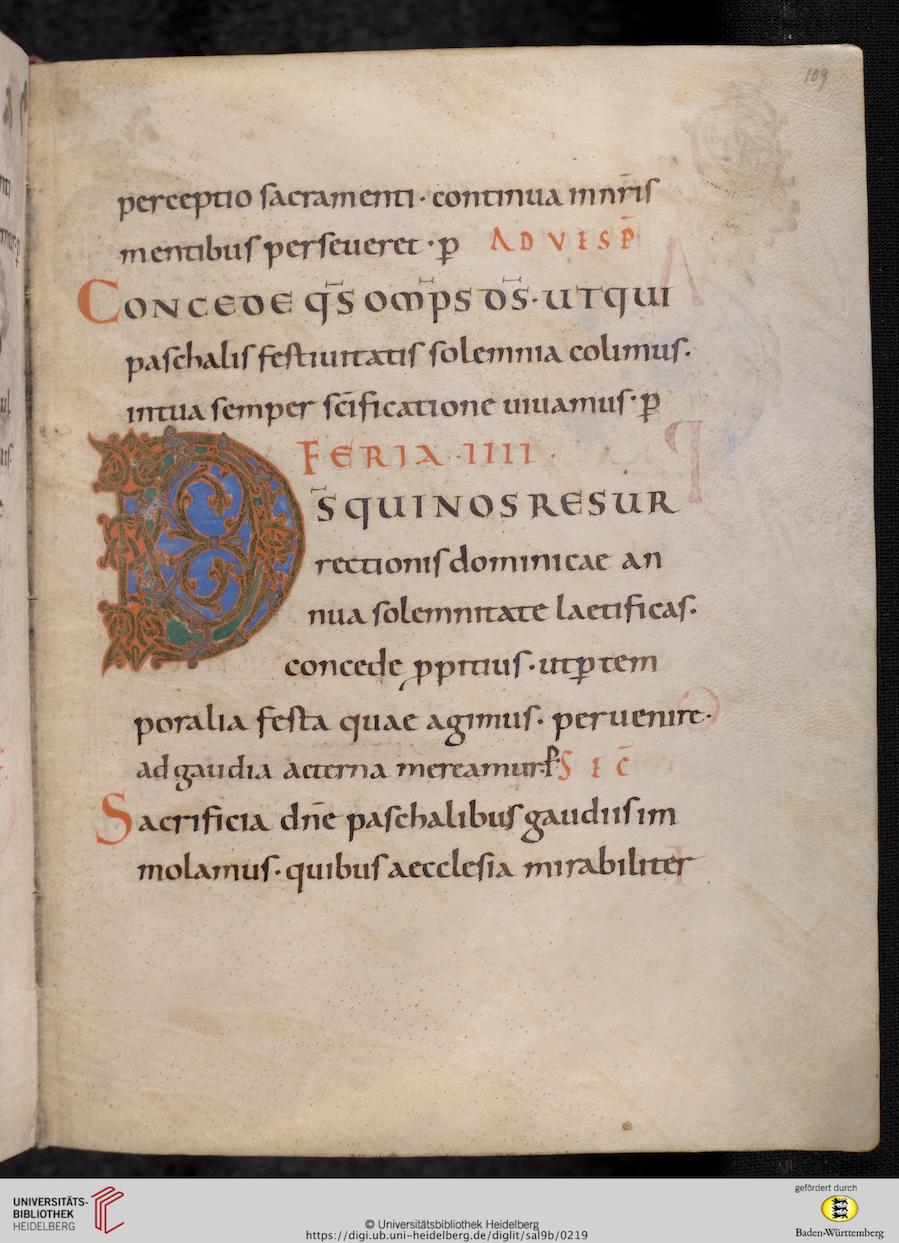 109
perceptio sacramenti · continua innr̄is
mentibus perseueret · ꝑ AD VESP̄
CONCEDE qs̄ OMP̄S DS̄ · UTQUI
paschalis festiuitatis solemnia colimus ·
intua semper sc̄ificatione uiuamus · ꝑ
FERIA · IIII ·
DS̄ QUINOS RESUR
rectionis dominicae an
nua solemnitate laetificas ·
concede ꝓpitius · utꝑtem
poralia festa quae agimus · peruenire ·
ad gaudia aeterna mereamur · ꝑ SEC̄
Sacrificia dn̄e paschalibus gaudiis im
molamus · quibus aecclesia mirabiliter
UNIVERSITÄTS-
BIBLIOTHEK
HEIDELBERG
© Universitätsbibliothek Heidelberg
https://digi.ub.uni-heidelberg.de/diglit/sal9b/0219
gefördert durch
Baden-Württemberg